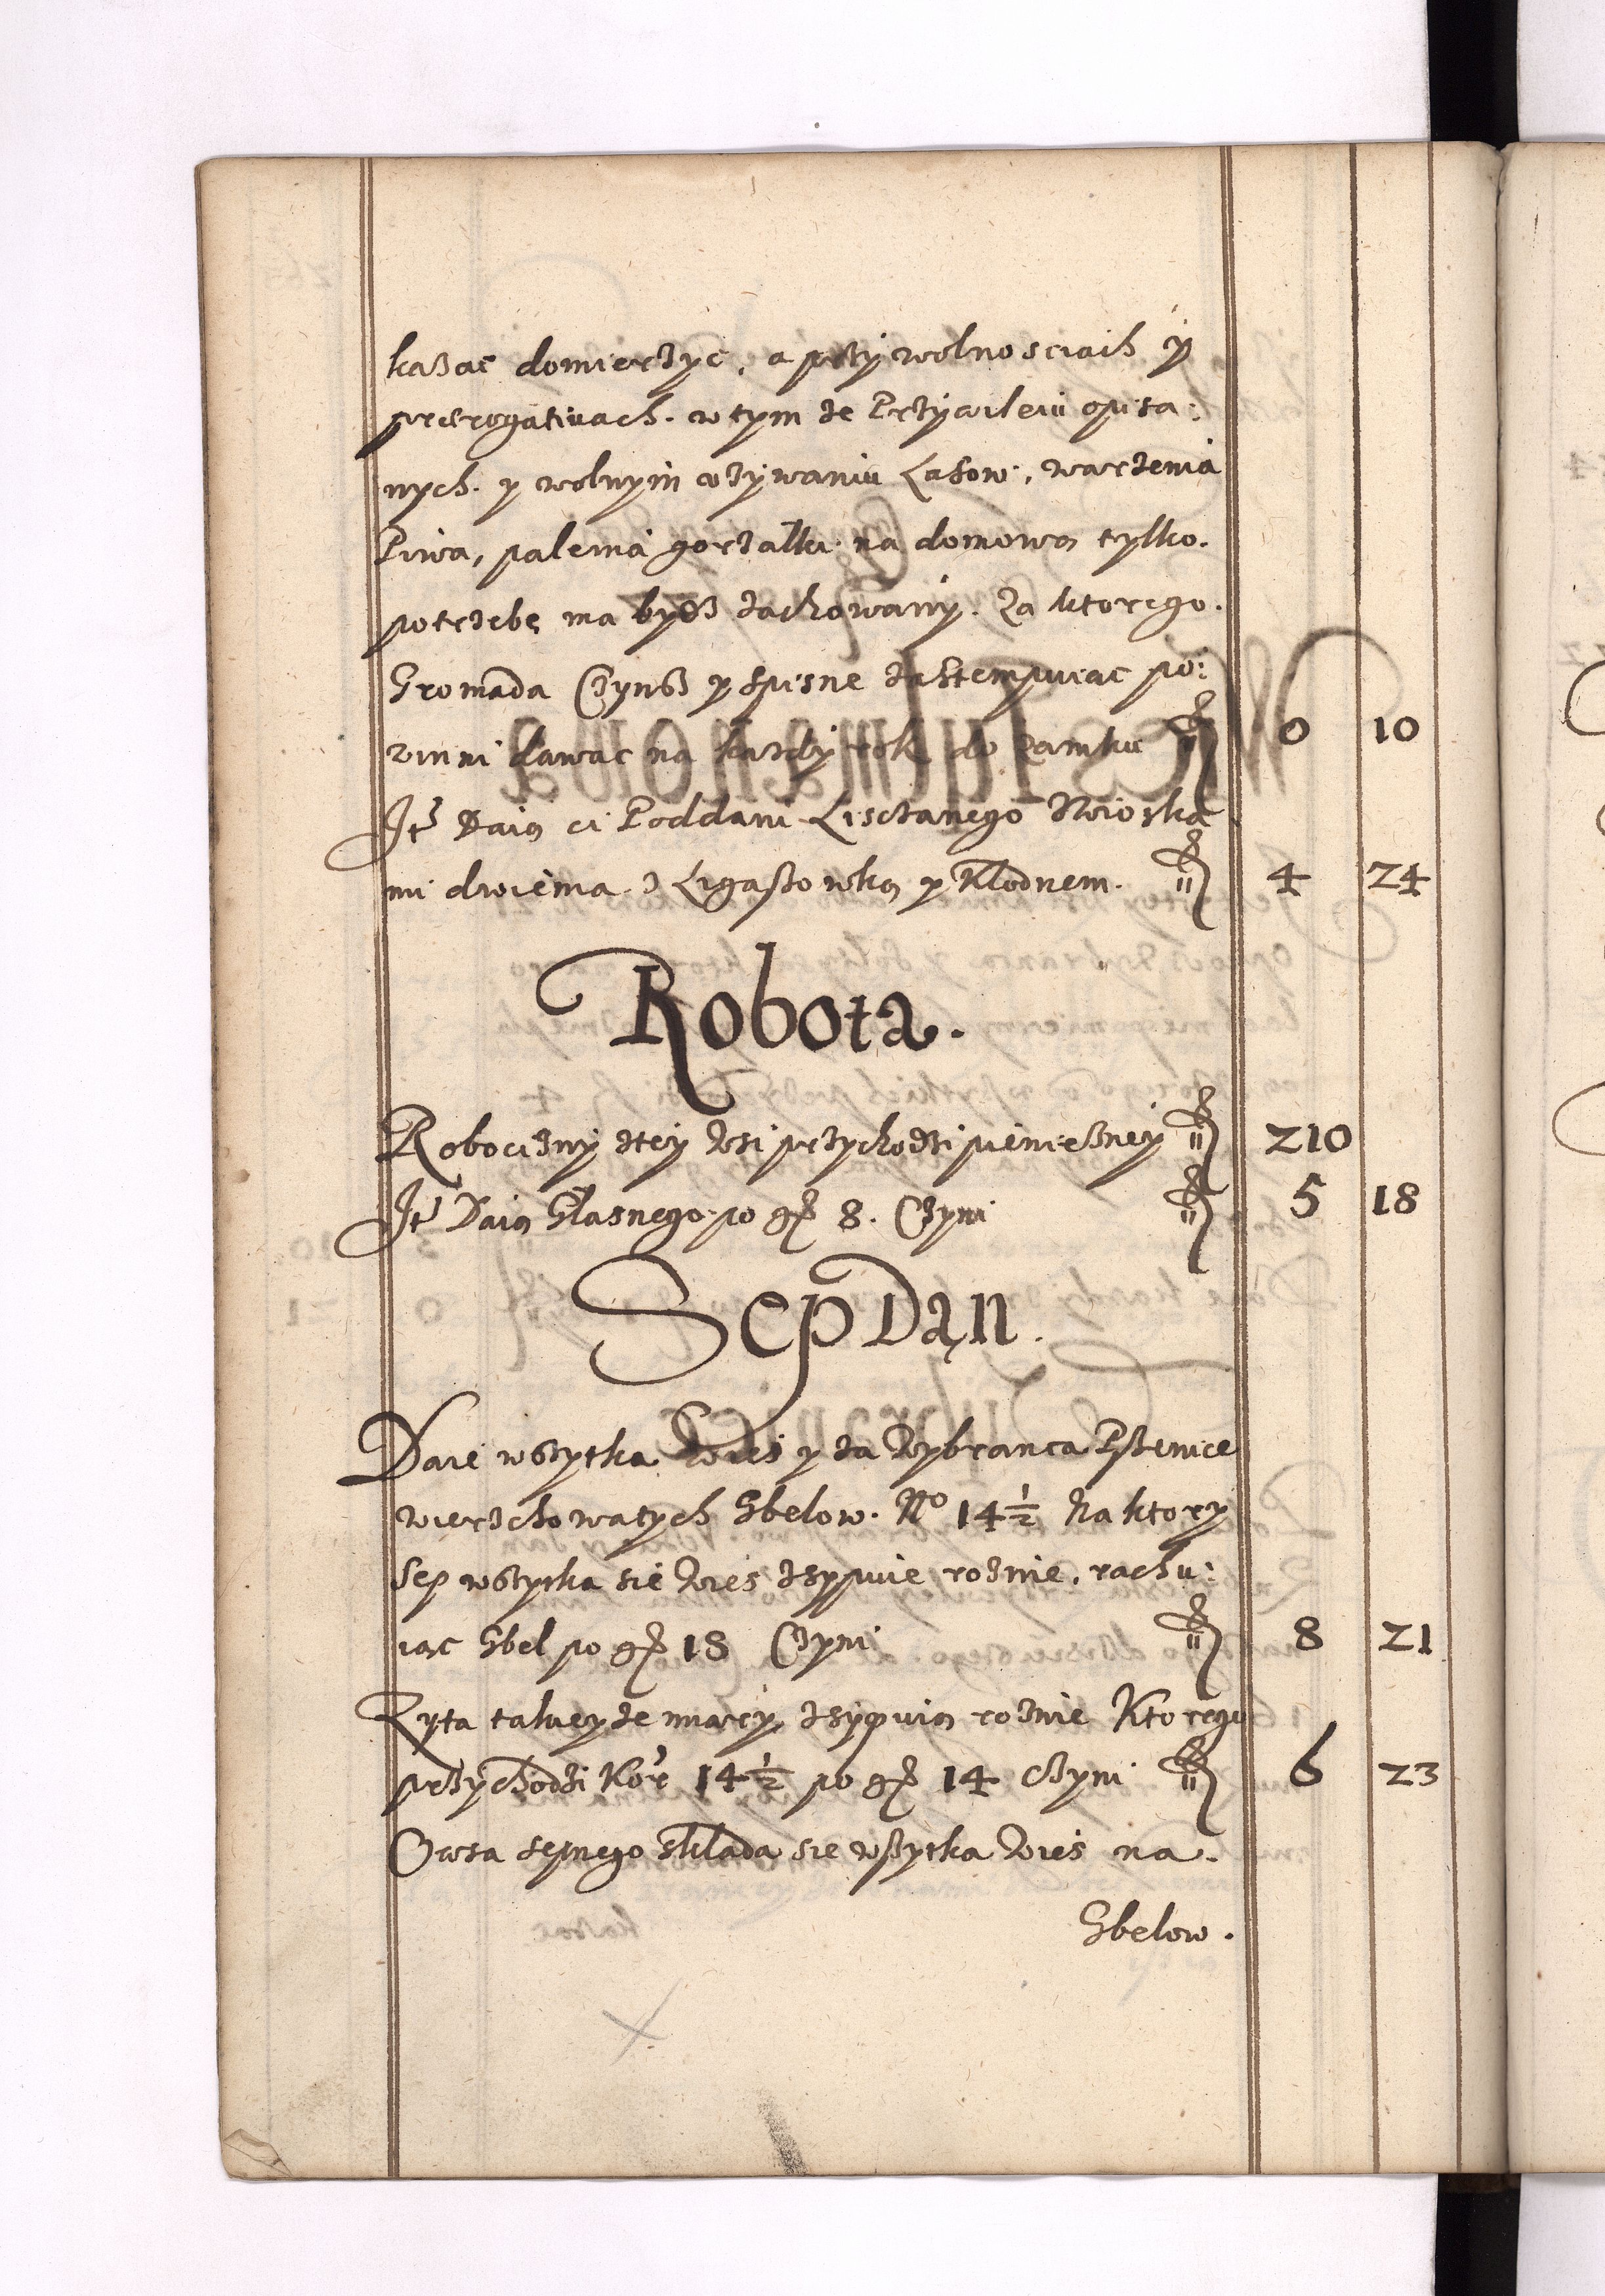 kazac domierzyc, a przy wolnosciach y
prærogativach. w tym ze Przywileiu opisa:
nych. y wolnym vzywaniu Lasow, warzenia
Piwa, palenia gorzałki na domowa tylko.
potrzebę ma bydz zachowany. Za ktorego.
Gromada Czynsz y spisne zastempuiac po:
vinni dawac na kazdy rok do Zamku ƒ 0 10
Jtẽ Daią ci Poddani Lisczanego Nwioska
mi dwiema z Ligaszowką y Kłodnem. ƒ 4 24
Robota.
Robocizny ztey Wsi przychodzi pienieżney ƒ 210
Jtẽ Daią Głasnego po gr 8. Czyni ƒ 5 18
Sep Dan.
Daie wszytka Wies y za Wybranca Pszenice
wierzchowatych Gbelow. No 14 1/2 Na ktory
Sep wszytka sie Wies zsypuie roznie, rachu:
iąc Gbel po gr 18 Czyni ƒ 8 21
Zyta takueyze miary zsypuią roznie Ktorego
przychodzi Kor 14 1/2 po gr 14 Czyni ƒ 6 23
Owsa sepnego składa sie wszytka Wies na.
Gbelow.